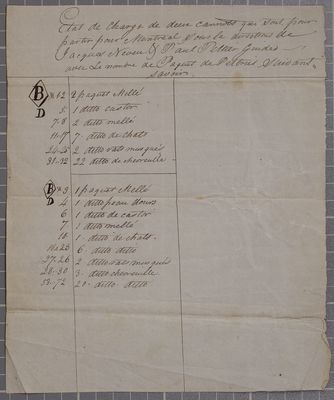 Etat de charge de deux cannots qui sont pour
partir pour Montreal sous la direction de
Jacques Neveu & Paul Peltier Guides
avec Le nombre de Paquet de Pelteries Suivant
Savoir
B D Nos 1-2 2 paquet Mellé
5 1 ditto castor
7-8 2 ditto mellé
11-17 7 ditto de chats
24-25 2 ditto rats musqués
31-52 22 ditto de chevreuille
B D No 3 1 paquet Mellé
4 1 ditto peau dours
6 1 ditto de castor
7 1 ditto mellé
10 1 ditto de chats
18 a 23 6 ditto ditto
27-26 2 ditto rats musqués
28-30 3 ditto chevreuille
53-72 20 ditto ditto